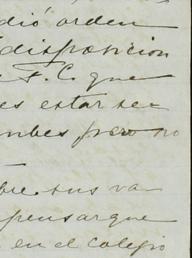 dió orden
disposicion
F. C. que
es estar se=
nbes pero no
bre sus va-
pensar que
en el colegio